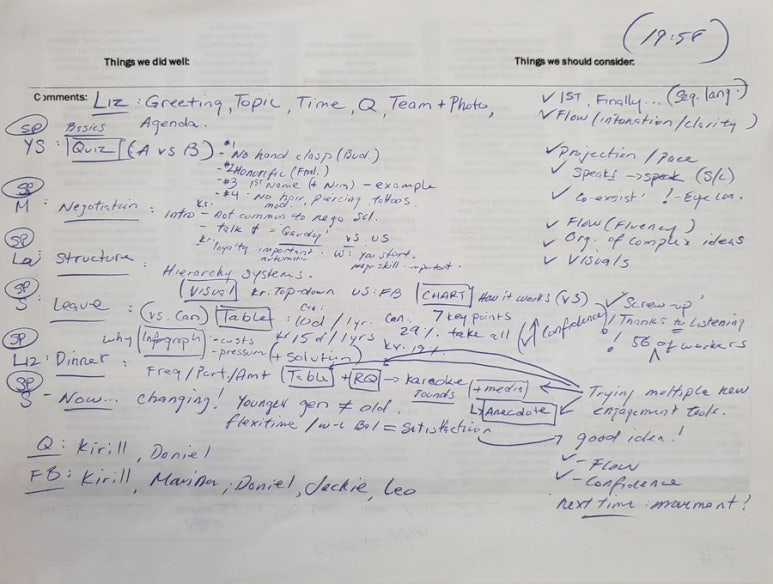 (19:58)
Things we did well: Things we should consider:
Comments: Liz: Greeting, Topic, Time, Q, Team + Photo, ✓ 1ST, Finally... (Seq. lang.)
Agenda. ✓ Flow (intonation/clarity)
SP Basics
YS: Quiz (A vs B) - #1 No hand clasp (Bud.) ✓ Projection / Pace
- #2 Honorific (Fml.) ✓ Speaks → speak (S/L)
- #3 1st Name (+ Nim) - example
- #4 - No hair, piercing, tattoos. ✓ Co-exist' ! - Eye con.
SP
M: Negotiation: Intro - Not common to nego Sal. ✓ Flow (Fluency)
- talk $ = Gaudy! vs US ✓ Org. of complex ideas
kr: loyalty important w: You start. ✓ Visuals
automatic nego skill important.
SP
La: Structure: Hierarchy systems.
Visual kr: Top-down US: FB CHART How it works (vs)
SP
S: Leave: (vs. Can) Table : 10d / 1yr. can: 7 key points ✓ 'Screw up'
kr 15d / 1yrs 29% take all ✓ Confidence ! Thanks to listening
kr. 19% ! 56 of workers
SP why Infograph - costs
- pressure (+ Solution)
Liz: Dinner: Freq/Part/Amt Table + RQ → karaoke (+ media) Trying multiple new
rounds engagement tools.
SP
S - Now... changing! Younger gen ≠ old. ↳ Anecdote
flexitime / w-L Bal = Satisfaction → good idea!
Q: Kirill, Daniel ✓ - Flow
FB: Kirill, Marina, Daniel, Jackie, Leo ✓ - Confidence
next time: movement?